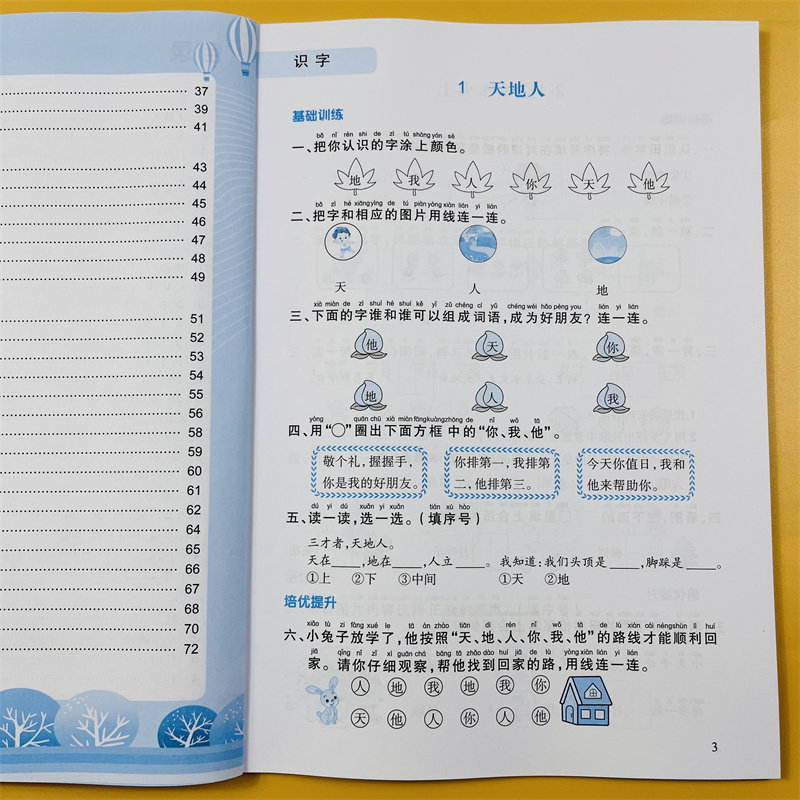 37
39
41
43
44
45
46
47
48
49
51
52
53
54
55
56
57
59
60
61
62
64
65
66
67
68
70
72
识字
1 天地人
基础训练
bǎ nǐ rèn shi de zì tú shàng yán sè
一、把你认识的字涂上颜色。
地 我 人 你 天 他
bǎ zì hé xiāng yìng de tú piàn yòng xiàn lián yi lián
二、把字和相应的图片用线连一连。
天 人 地
xià miàn de zì shuí hé shuí kě yǐ zǔ chéng cí yǔ chéng wéi hǎo péng you lián yi lián
三、下面的字谁和谁可以组成词语,成为好朋友?连一连。
他 天 你
地 人 我
yòng quān chū xià miàn fāng kuàng zhōng de nǐ wǒ tā
四、用“○”圈出下面方框中的“你、我、他”。
敬个礼,握握手,
你是我的好朋友。
你排第一,我排第
二,他排第三。
今天你值日,我和
他来帮助你。
dú yi dú xuǎn yi xuǎn tián xù hào
五、读一读,选一选。(填序号)
三才者,天地人。
天在____,地在____,人立____。
①上 ②下 ③中间
我知道:我们头顶是____,脚踩是____。
①天 ②地
培优提升
xiǎo tù zi fàng xué le tā àn zhào tiān dì rén nǐ wǒ tā de lù xiàn cái néng shùn lì huí
六、小兔子放学了,他按照“天、地、人、你、我、他”的路线才能顺利回
jiā qǐng nǐ zǐ xì guān chá bāng tā zhǎo dào huí jiā de lù yòng xiàn lián yi lián
家。请你仔细观察,帮他找到回家的路,用线连一连。
人 地 我 地 我 你
天 他 人 你 人 他
3